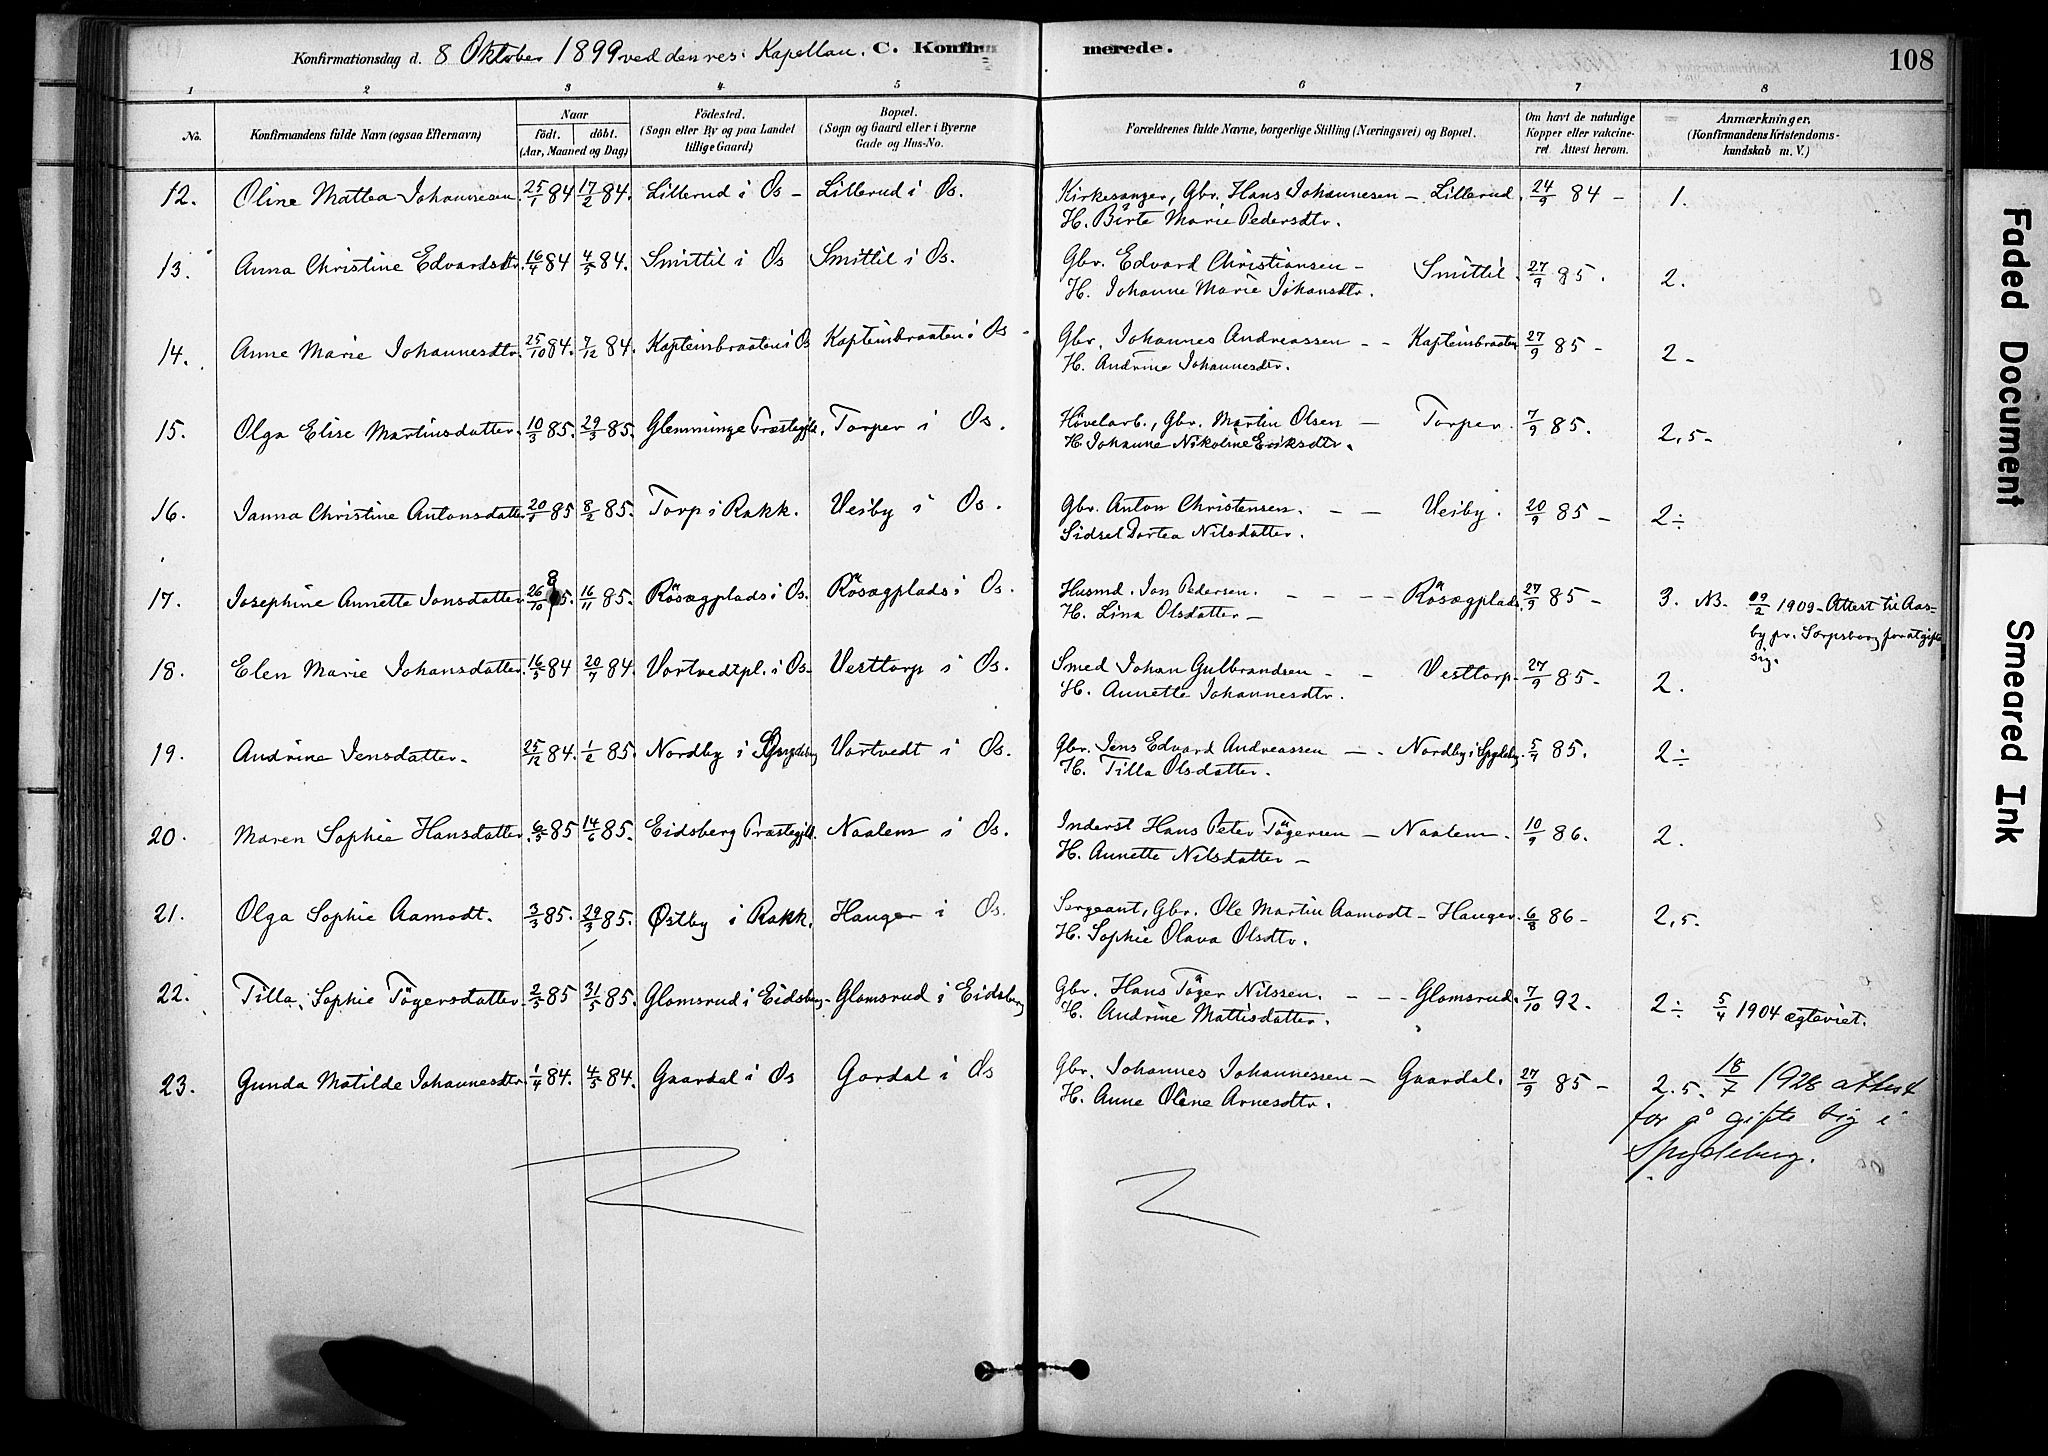 Konfirmationsdag d. 8 Oktober 1899 ved den res. Kapellan. C. Konfirmerede. 108
1 2 3 4 5 6 7 8
No. Konfirmandens fulde Navn (ogsaa Efternavn) Naar födt. döbt. (Aar, Maaned og Dag) Födested. (Sogn eller By og paa Landet tillige Gaard) Bopæl. (Sogn og Gaard eller i Byerne Gade og Hus-No. Forældrenes fulde Navne, borgerlige Stilling (Næringsvei) og Bopæl. Om havt de naturlige Kopper eller vakcineret. Attest herom. Anmærkninger. (Konfirmandens Kristendomskundskab m. V.)
12. Oline Mattea Johannesen. 25/1 84 17/2 84. Lillerud i Os - Lillerud i Os. Kirkesanger, Gbr. Hans Johannesen - Lillerud. 24/9 84 - 1.
H. Birte Marie Pedersdtr.
13. Anna Christine Edvardsdtr. 16/4 84 4/5 84. Smittil i Os Smittil i Os. Gbr. Edvard Christiansen - Smittil. 27/9 85. 2.
H. Johanne Marie Johansdtr.
14. Anne Marie Johannesdtr. 25/10 84. 7/12 84. Kapteinbraaten i Os Kapteinbraaten i Os - Gbr. Johannes Andreassen - - Kapteinbraaten 27/9 85 - 2 -
H. Andrine Johannesdtr.
15. Olga Elise Martinsdatter. 10/3 85. 29/3 85. Glemminge Præstegjld. Torper i Os. Hövelarb., Gbr. Martin Olsen - Torper. 7/9 85. 2,5 -
H. Johanne Nikoline Eriksdtr.
16. Janna Christine Antonsdatter. 20/1 85 8/2 85. Torp i Rakk. Veiby i Os. Gbr. Anton Christensen. - - Veiby. 20/9 85 - 2 ÷
Sidsel Dortea Nilsdatter.
17. Josephine Annette Jonsdatter 26/10 85. 16/11 85. Rösægplads i Os. Rösægplads i Os. Husmd. Jon Pedersen. - - - - Rösægplads. 27/9 85 - 3. NB. 09/2 1909 - Attest til Aas-
H. Lina Olsdatter - by pr. Sarpsborg for at gifte
sig.
18. Elen Marie Johansdatter. 16/5 84 20/7 84. Vortvedtpl. i Os - Vesttorp i Os. Smed Johan Gulbrandsen - - Vesttorp - 27/9 85 - 2.
H. Annette Johannesdtr.
19. Andrine Jensdatter. 25/12 84. 1/2 85. Nordby i Spydeberg Vortvedt i Os. Gbr. Jens Edvard Andreassen - - Nordby i Spydeberg. 5/7 85. 2 ÷
H. Tilla Olsdatter.
20. Maren Sophie Hansdatter. 6/5 85 14/6 85. Eidsberg Præstegjld. Naalem i Os. Inderst Hans Peter Tögersen - Naalem. 10/9 86. 2.
H. Annette Nilsdatter -
21. Olga Sophie Aamodt. 3/3 85. 29/3 85. Østby i Rakk. Hauger i Os. Sergeant, Gbr. Ole Martin Aamodt - Hauger. 6/8 86 - 2,5.
H. Sophie Olava Olsdtr.
22. Tilla Sophie Tögersdatter. 2/3 85 31/5 85. Glomsrud i Eidsberg - Glomsrud i Eidsberg Gbr. Hans Töger Nilssen. - - - Glomsrud. 7/10 92. 2 ÷ 5/4 1904 ægteviet.
H. Andrine Mattisdatter. "
23. Gunda Matilde Johannesdtr. 1/4 84. 4/5 84. Gaardal i Os Gardal i Os Gbr. Johannes Johannessen - Gaardal. 27/9 85 - 2.5. 18/7 1928 attest
H. Anne Oline Arnesdtr. for å gifte sig i
Spydeberg.
Faded Document
Smeared Ink